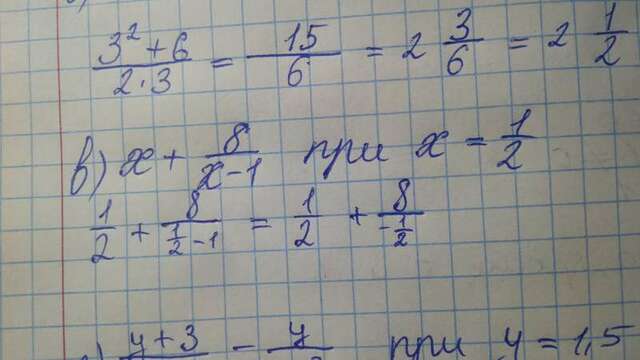 (3² + 6)/(2 · 3) = 15/6 = 2 3/6 = 2 1/2
в) x + 8/(x - 1) при x = 1/2
1/2 + 8/(1/2 - 1) = 1/2 + 8/(-1/2)
(y + 3)/ - y/ при y = 1,5